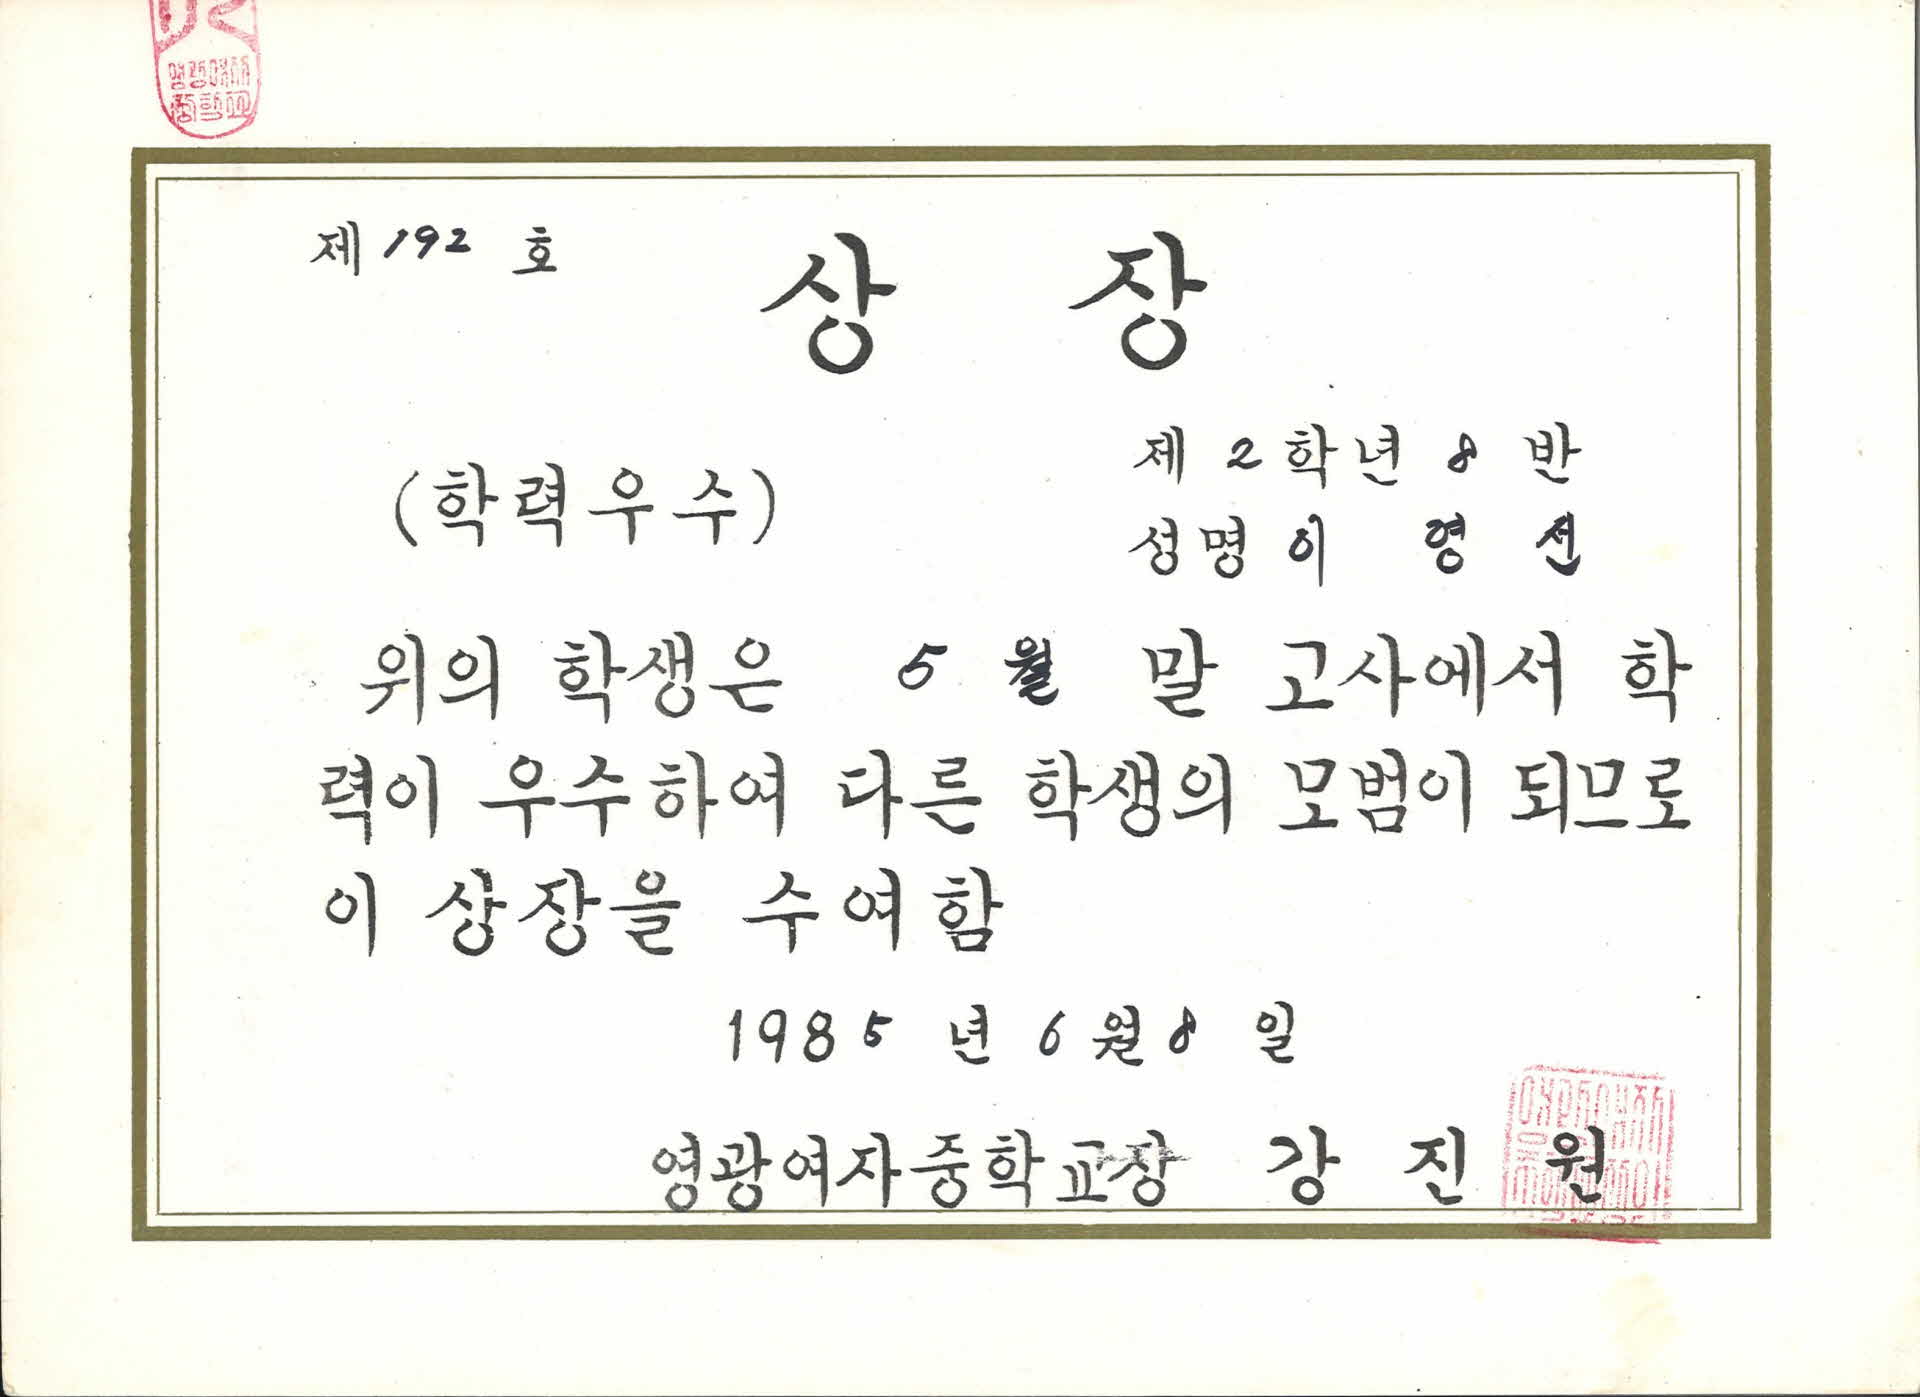 제 192 호
상 장
제 2 학년 8 반
(학력우수)
성명 이 영 선
위의 학생은 5 월 말 고사에서 학
력이 우수하여 다른 학생의 모범이 되므로
이 상장을 수여함
1985 년 6 월 8 일
영광여자중학교장 강 진 원